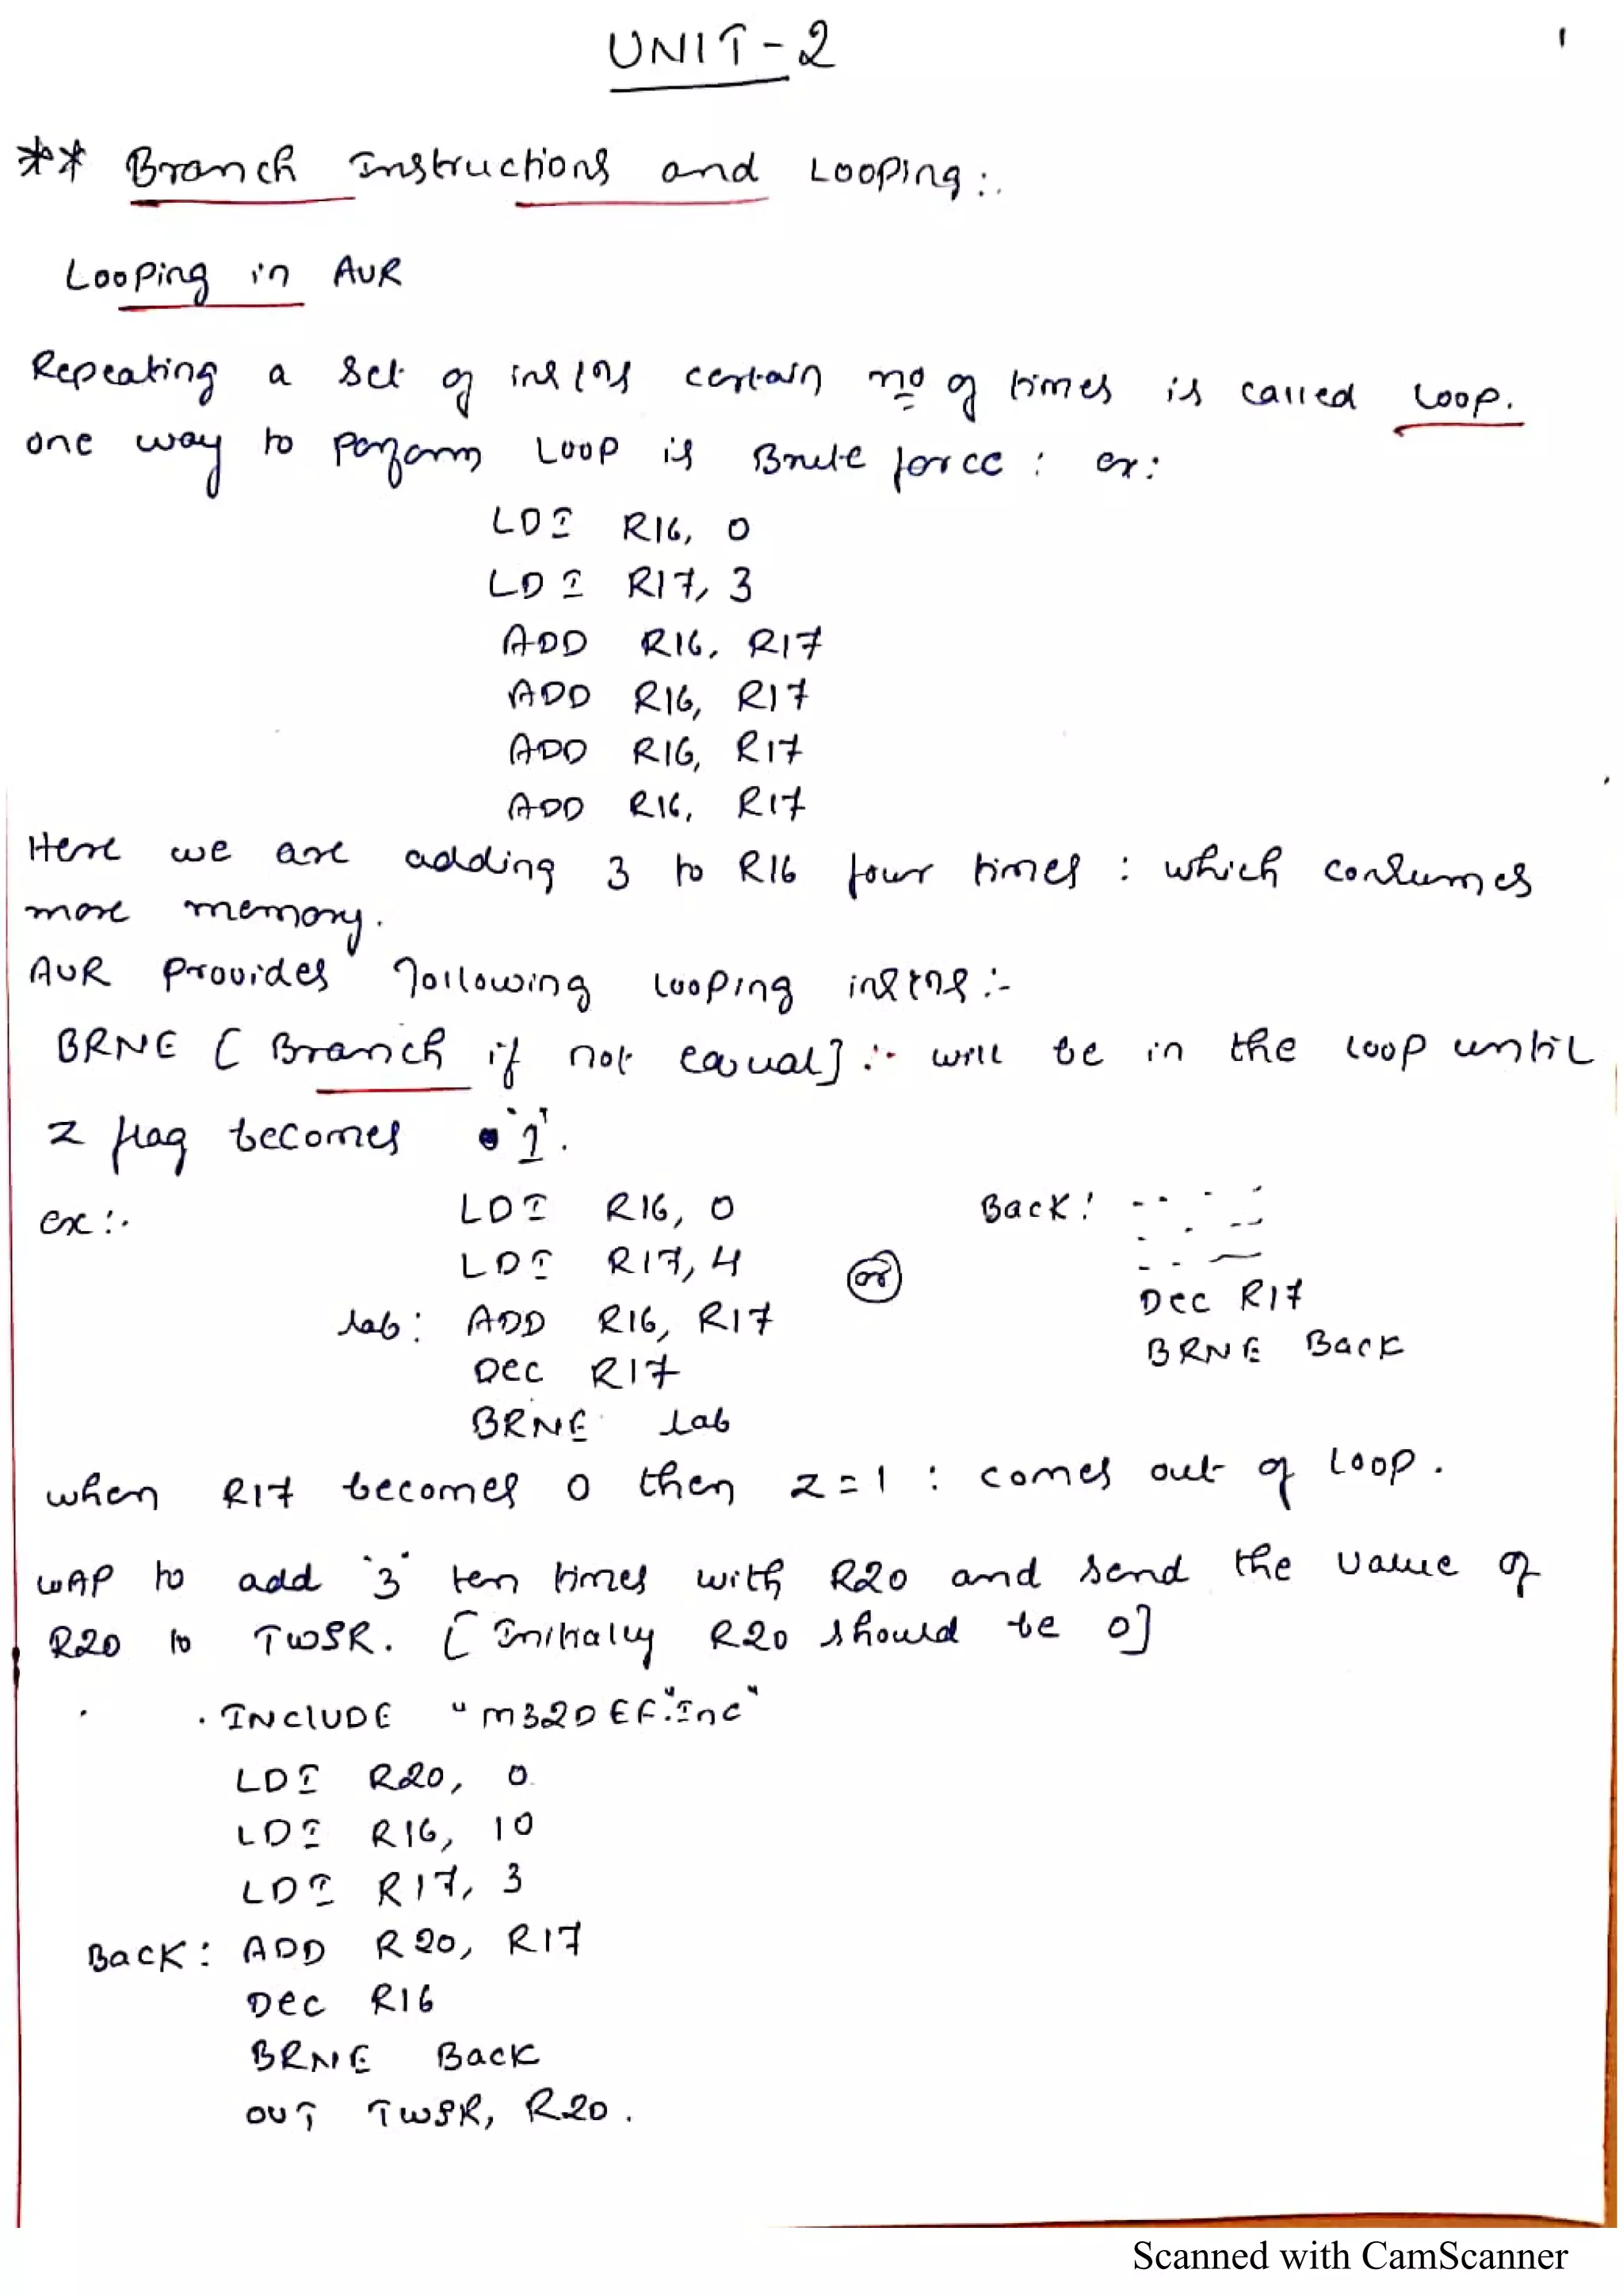 UNIT-2
1
** Branch Instructions and Looping:.
Looping in AVR
Repeating a set of instns certain no of times is called loop.
one way to perform Loop is Brute force : ex:
LDI R16, 0
LDI R17, 3
ADD R16, R17
ADD R16, R17
ADD R16, R17
ADD R16, R17
Here we are adding 3 to R16 four times : which consumes
more memory.
AVR Provides following looping instns :-
BRNE [ Branch if not equal] :- will be in the loop until
Z flag becomes '1'.
ex :-
LDI R16, 0
LDI R17, 4
lab : ADD R16, R17
Dec R17
BRNE lab
or
Back :
Dec R17
BRNE Back
when R17 becomes 0 then Z = 1 : comes out of Loop.
WAP to add '3' ten times with R20 and send the value of
R20 to TWSR. [ Initially R20 should be 0]
. INCLUDE "M32DEF.Inc"
LDI R20, 0
LDI R16, 10
LDI R17, 3
Back : ADD R20, R17
Dec R16
BRNE Back
OUT TWSR, R20.
Scanned with CamScanner